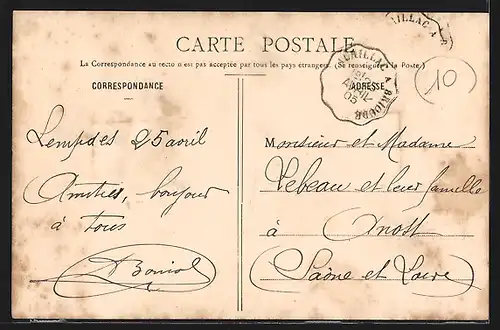 CARTE POSTALE
La Correspondance au recto n'est pas acceptée par tous les pays étrangers. (Se renseigner à la Poste)
CORRESPONDANCE
ADRESSE
10
Lempdes 25 avril
Amitiés, bonjour
à tous
Monsieur et Madame
Lebeau et leur famille
à
Anost
(Saône et Loire)